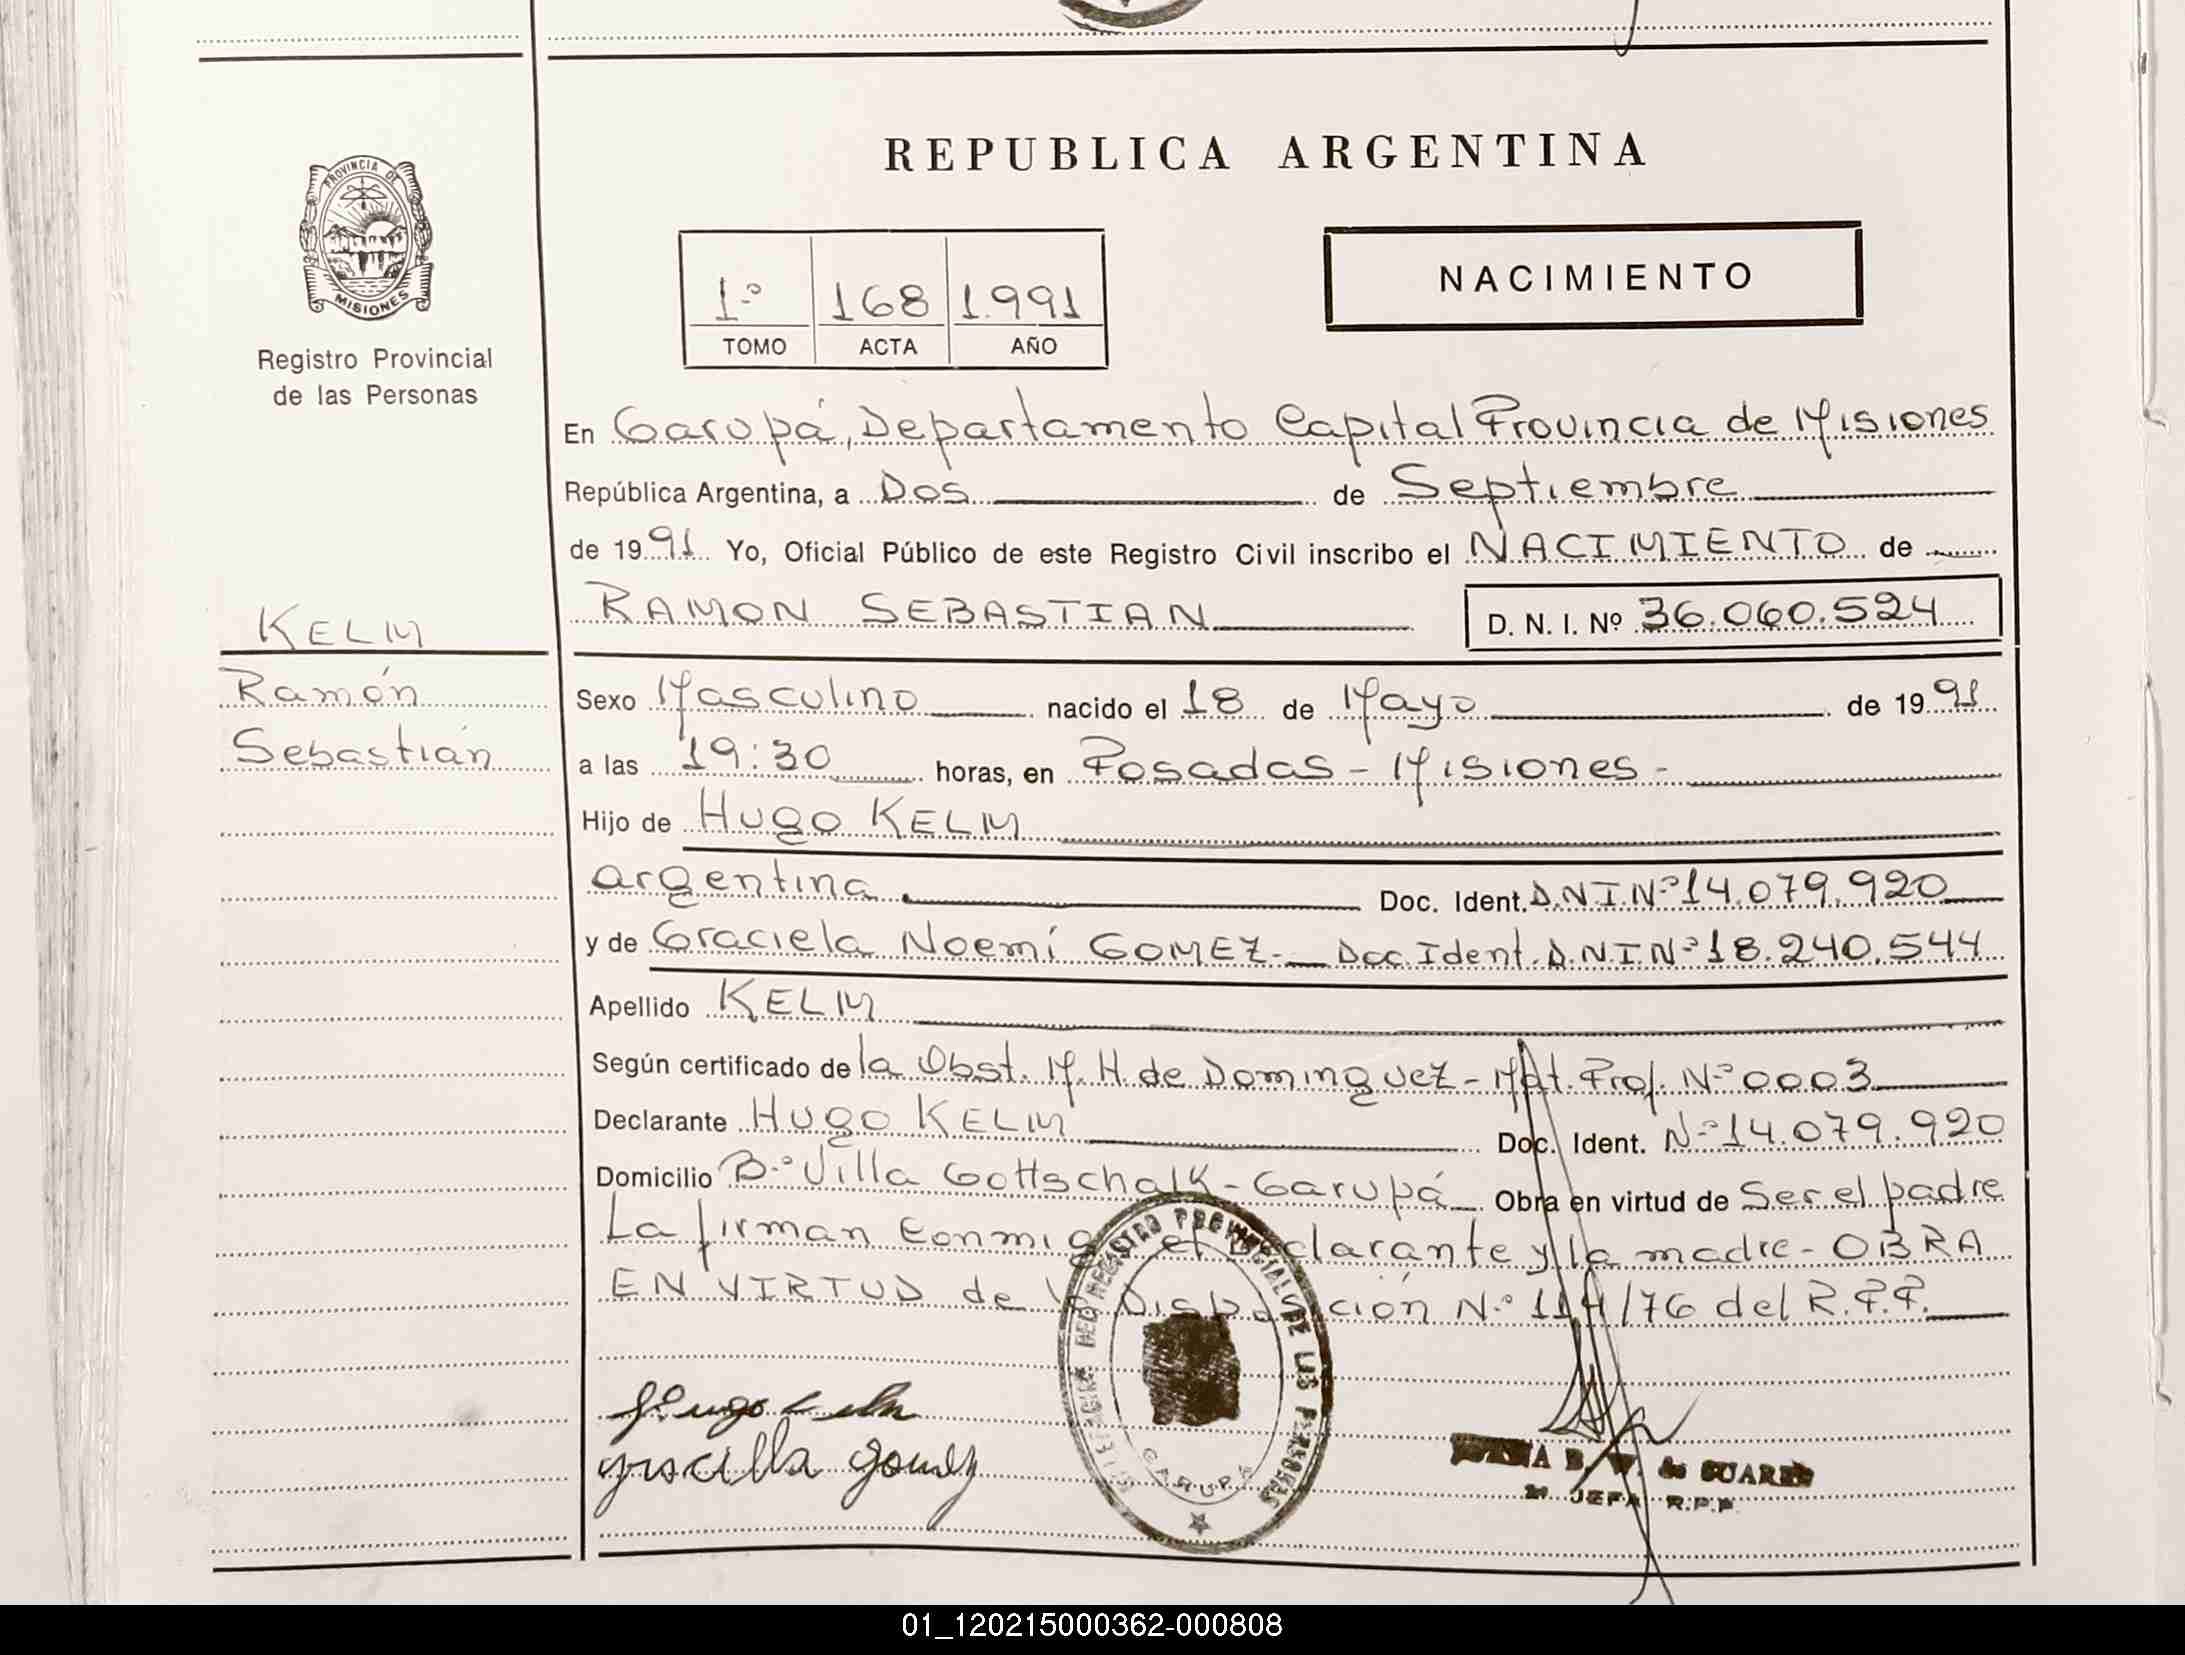 REPUBLICA ARGENTINA
PROVINCIA DE
MISIONES
Registro Provincial
de las Personas
1º 168 1.991
TOMO ACTA AÑO
NACIMIENTO
En Garupá, Departamento Capital Provincia de Misiones
República Argentina, a Dos de Septiembre
de 1991 Yo, Oficial Público de este Registro Civil inscribo el NACIMIENTO de
RAMON SEBASTIAN D. N. I. Nº 36.060.524
KELM
Ramón
Sebastián
Sexo Masculino nacido el 18 de Mayo de 1991
a las 19:30 horas, en Posadas - Misiones -
Hijo de Hugo KELM
argentina Doc. Ident. D.N.I.Nº 14.079.920
y de Graciela Noemí GOMEZ- Doc.Ident. D.N.I.Nº 18.240.544
Apellido KELM
Según certificado de la Obst. M. H. de Dominguez - Mat. Prof. Nº 0003
Declarante Hugo KELM Doc. Ident. Nº 14.079.920
Domicilio Bº Villa Gottschalk - Garupá Obra en virtud de Ser el padre
La firman Conmigo el Declarante y la madre - OBRA
EN VIRTUD de la Disposición Nº 114/76 del R.P.P.
Hugo Kelm
graciella gomez
REGISTRO PROVINCIAL DE LAS PERSONAS
GARUPA
B. W. de SUAREZ
JEFA R.P.P.
01_120215000362-000808